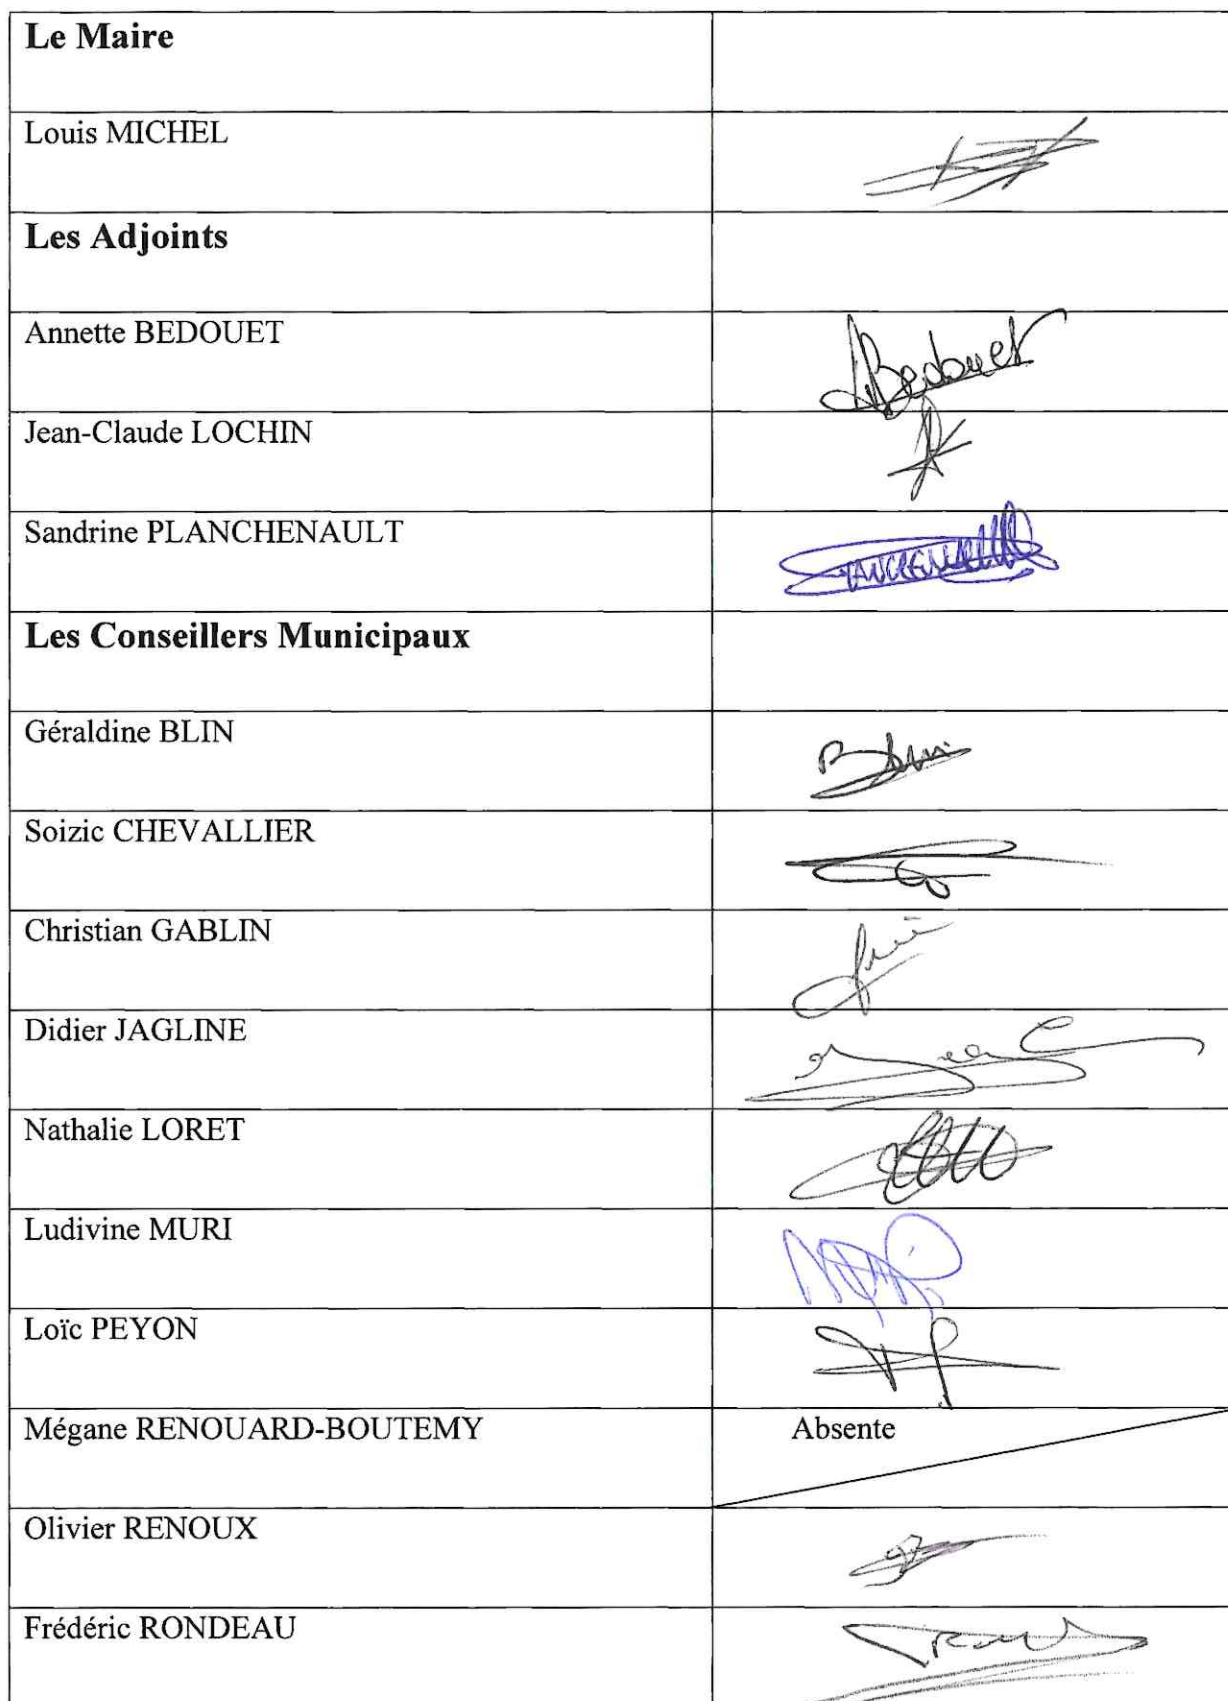 Le Maire
Louis MICHEL
Les Adjoints
Annette BEDOUET
ABedouet
Jean-Claude LOCHIN
Sandrine PLANCHENAULT
Les Conseillers Municipaux
Géraldine BLIN
Soizic CHEVALLIER
Christian GABLIN
Didier JAGLINE
Nathalie LORET
Ludivine MURI
Loïc PEYON
Mégane RENOUARD-BOUTEMY Absente
Olivier RENOUX
Frédéric RONDEAU